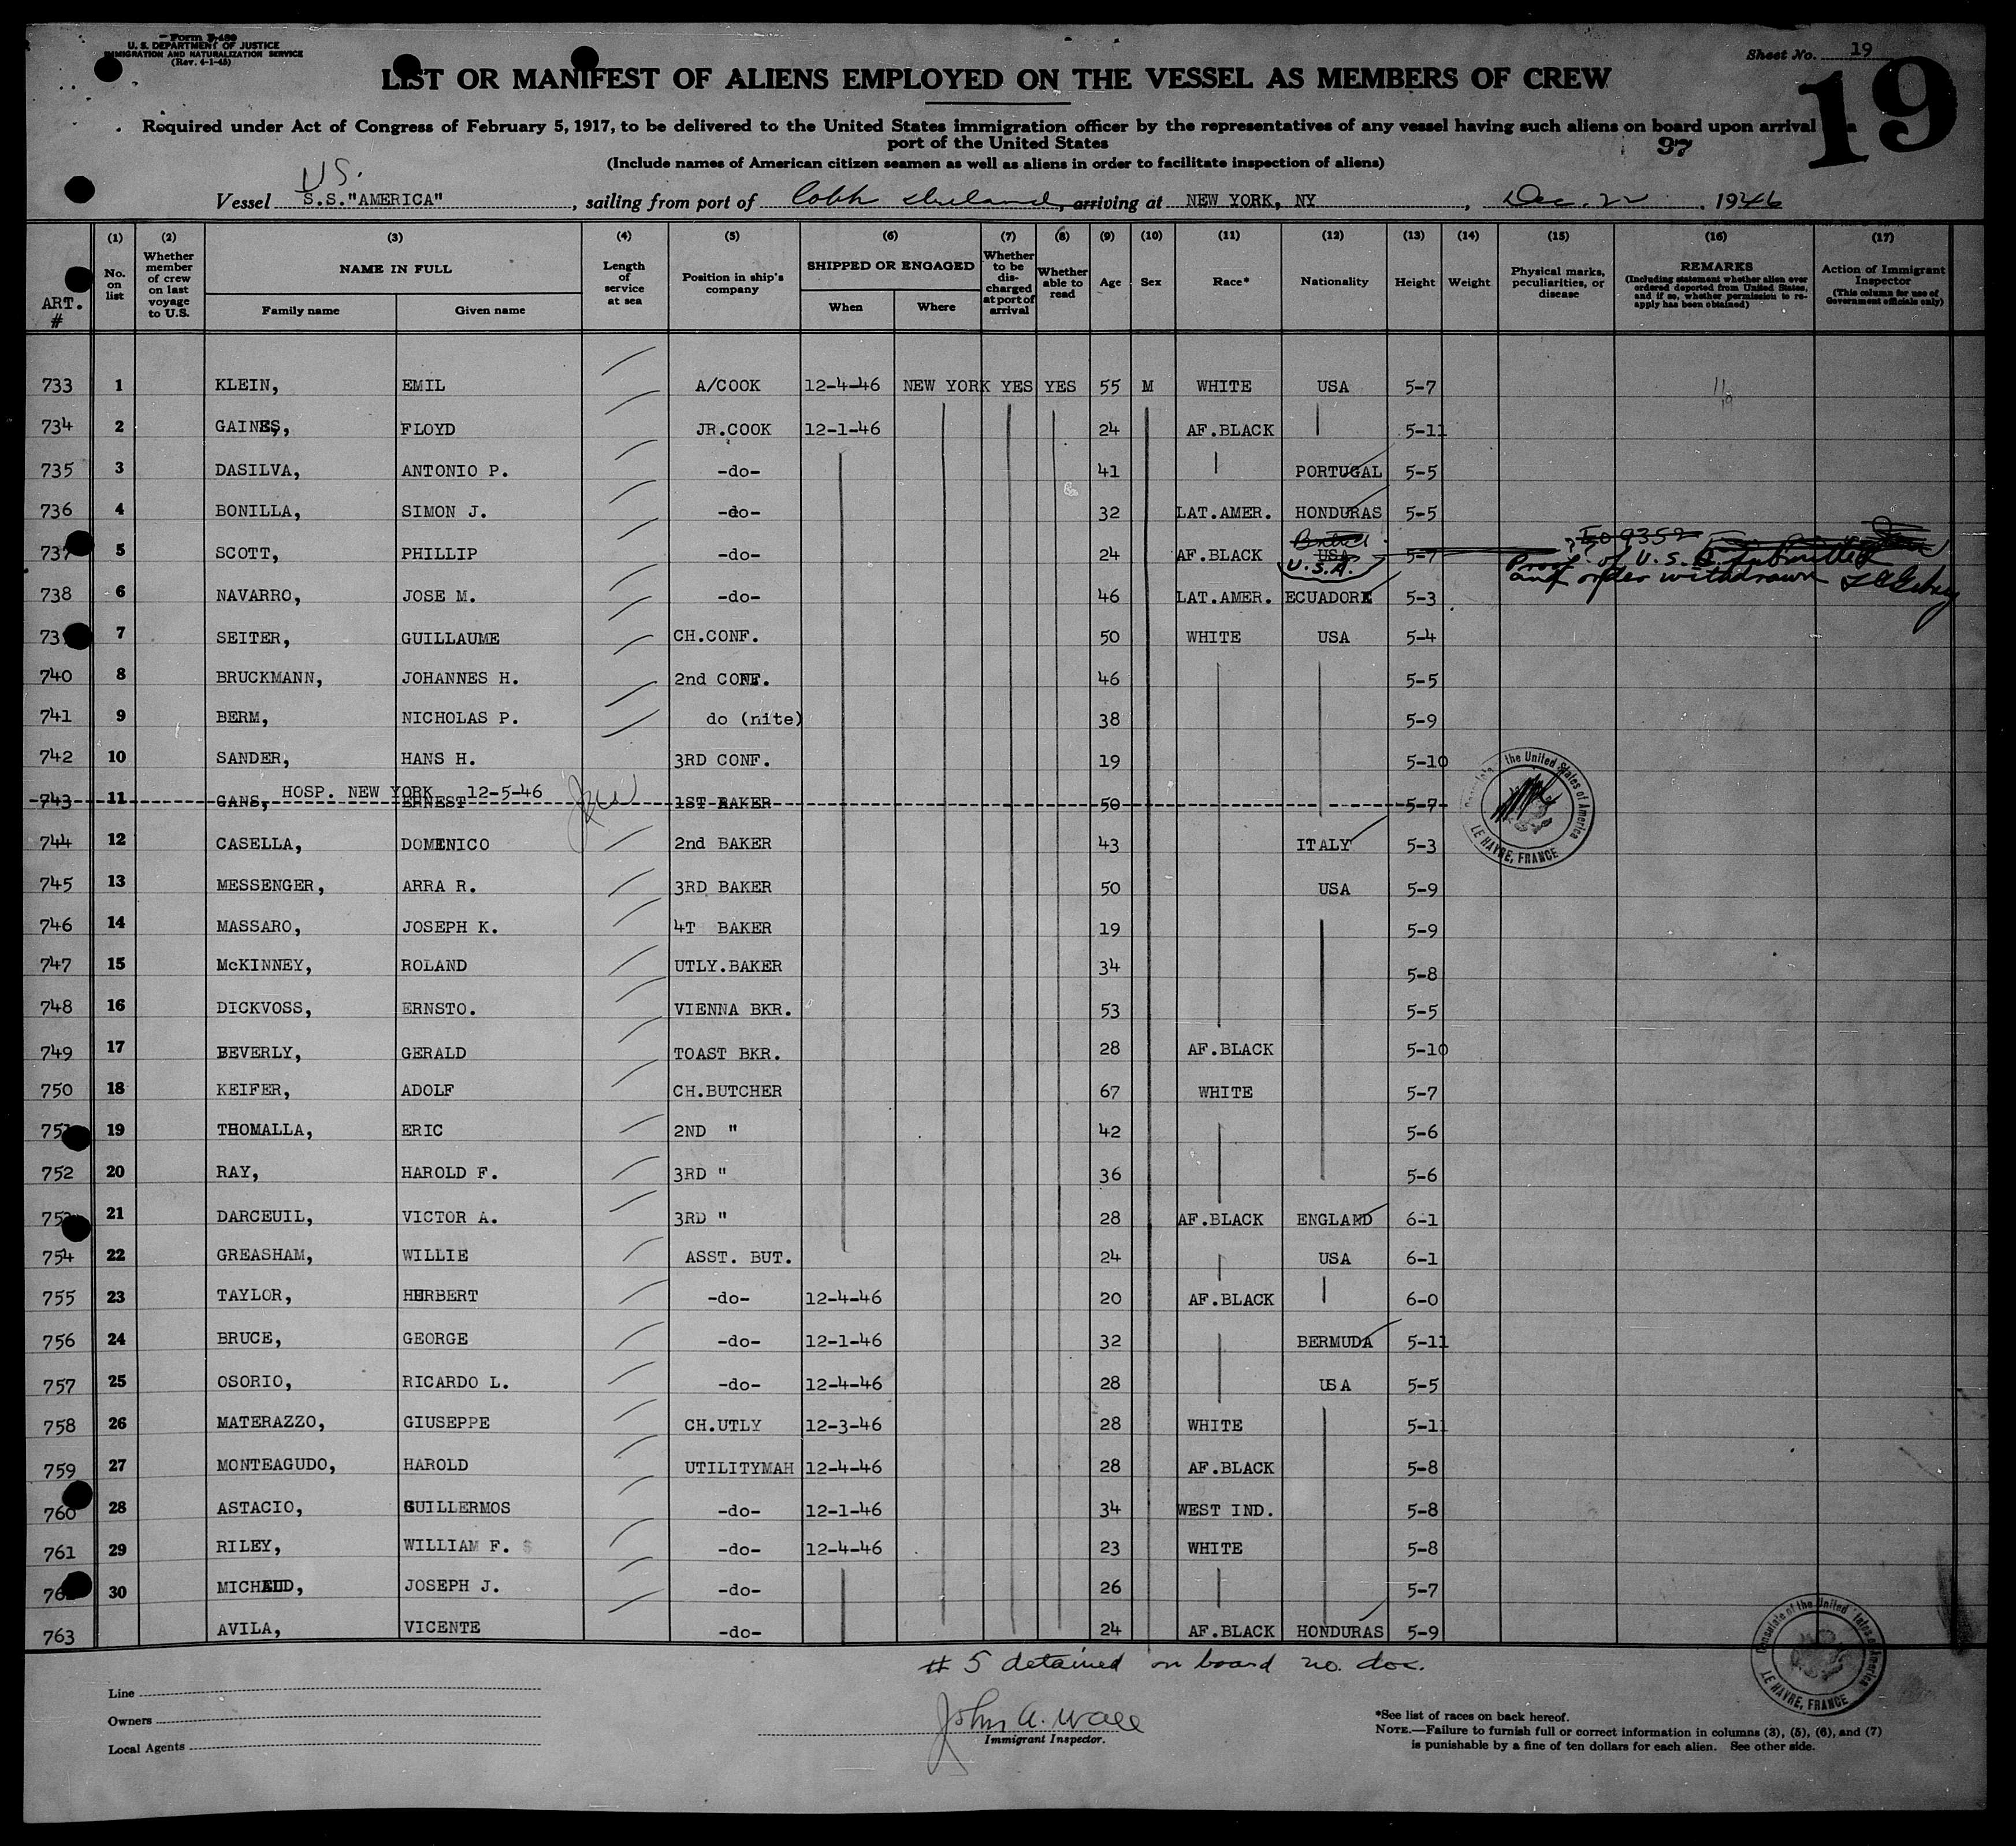 Form I-480
U. S. DEPARTMENT OF JUSTICE
IMMIGRATION AND NATURALIZATION SERVICE
(Rev. 4-1-45)
Sheet No. 19
19
LIST OR MANIFEST OF ALIENS EMPLOYED ON THE VESSEL AS MEMBERS OF CREW
Required under Act of Congress of February 5, 1917, to be delivered to the United States immigration officer by the representatives of any vessel having such aliens on board upon arrival
port of the United States
97
(Include names of American citizen seamen as well as aliens in order to facilitate inspection of aliens)
US.
Vessel S.S."AMERICA", sailing from port of Cobh Ireland, arriving at NEW YORK, NY, Dec. 22, 1946
ART. # (1) No. on list (2) Whether member of crew on last voyage to U.S. (3) NAME IN FULL Family name Given name (4) Length of service at sea (5) Position in ship's company (6) SHIPPED OR ENGAGED When Where (7) Whether to be discharged at port of arrival (8) Whether able to read (9) Age (10) Sex (11) Race* (12) Nationality (13) Height (14) Weight (15) Physical marks, peculiarities, or disease (16) REMARKS (Including statement whether alien ever ordered deported from United States, and if so, whether permission to re-apply has been obtained) (17) Action of Immigrant Inspector (This column for use of Government officials only)
733 1 KLEIN, EMIL A/COOK 12-4-46 NEW YORK YES YES 55 M WHITE USA 5-7
734 2 GAINES, FLOYD JR.COOK 12-1-46 24 AF.BLACK 5-11
735 3 DASILVA, ANTONIO P. -do- 41 PORTUGAL 5-5
736 4 BONILLA, SIMON J. -do- 32 LAT.AMER. HONDURAS 5-5
737 5 SCOTT, PHILLIP -do- 24 AF.BLACK USA U.S.A. 5-7 EO 9352
Proof of U.S.C. submitted
and order withdrawn
738 6 NAVARRO, JOSE M. -do- 46 LAT.AMER. ECUADORE 5-3
73 7 SEITER, GUILLAUME CH.CONF. 50 WHITE USA 5-4
740 8 BRUCKMANN, JOHANNES H. 2nd CONF. 46 5-5
741 9 BERM, NICHOLAS P. do (nite) 38 5-9
742 10 SANDER, HANS H. 3RD CONF. 19 5-10
HOSP. NEW YORK 12-5-46
743 11 GANS, ERNEST 1ST BAKER 50 5-7
744 12 CASELLA, DOMENICO 2nd BAKER 43 ITALY 5-3
745 13 MESSENGER, ARRA R. 3RD BAKER 50 USA 5-9
746 14 MASSARO, JOSEPH K. 4T BAKER 19 5-9
747 15 McKINNEY, ROLAND UTLY.BAKER 34 5-8
748 16 DICKVOSS, ERNSTO. VIENNA BKR. 53 5-5
749 17 BEVERLY, GERALD TOAST BKR. 28 AF.BLACK 5-10
750 18 KEIFER, ADOLF CH.BUTCHER 67 WHITE 5-7
751 19 THOMALLA, ERIC 2ND " 42 5-6
752 20 RAY, HAROLD F. 3RD " 36 5-6
753 21 DARCEUIL, VICTOR A. 3RD " 28 AF.BLACK ENGLAND 6-1
754 22 GREASHAM, WILLIE ASST. BUT. 24 USA 6-1
755 23 TAYLOR, HERBERT -do- 12-4-46 20 AF.BLACK 6-0
756 24 BRUCE, GEORGE -do- 12-1-46 32 BERMUDA 5-11
757 25 OSORIO, RICARDO L. -do- 12-4-46 28 USA 5-5
758 26 MATERAZZO, GIUSEPPE CH.UTLY 12-3-46 28 WHITE 5-11
759 27 MONTEAGUDO, HAROLD UTILITYMAH 12-4-46 28 AF.BLACK 5-8
760 28 ASTACIO, GUILLERMOS -do- 12-1-46 34 WEST IND. 5-8
761 29 RILEY, WILLIAM F. -do- 12-4-46 23 WHITE 5-8
762 30 MICHAUD, JOSEPH J. -do- 26 5-7
763 AVILA, VICENTE -do- 24 AF.BLACK HONDURAS 5-9
Consulate of the United States of America
LE HAVRE, FRANCE
Consulate of the United States of America
LE HAVRE, FRANCE
# 5 detained on board no. doc.
Line
Owners
Local Agents
John A. Wall
Immigrant Inspector.
*See list of races on back hereof.
NOTE.—Failure to furnish full or correct information in columns (3), (5), (6), and (7)
is punishable by a fine of ten dollars for each alien. See other side.